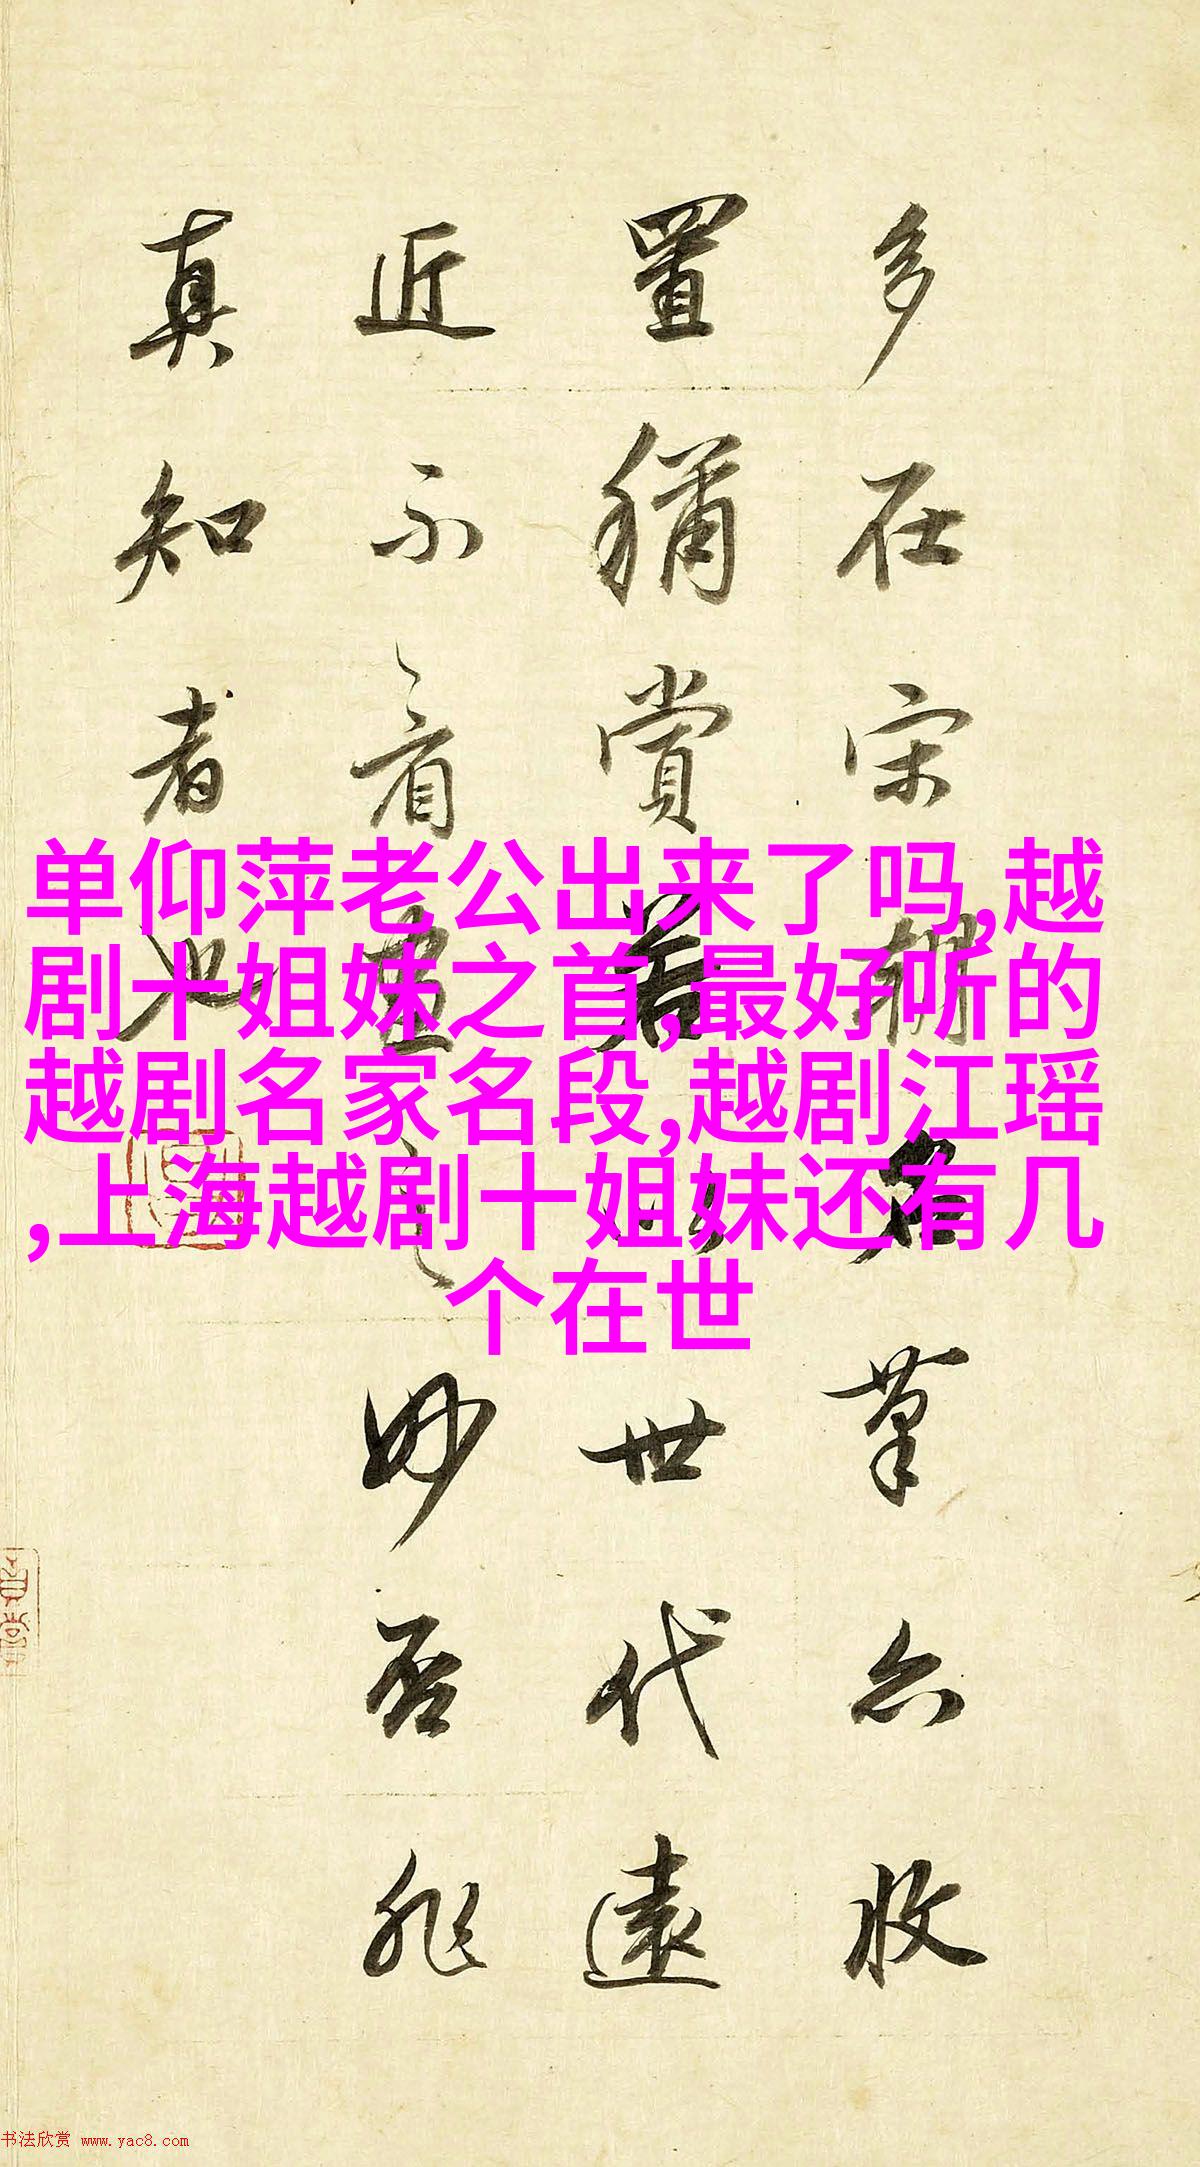 多在宋朝名筆亦收
置稱賞若以世代遠
近不看畫之妙否非
真知者也
单仰萍老公出来了吗,越
剧十姐妹之首,最好听的
越剧名家名段,越剧江瑶
,上海越剧十姐妹还有几
个在世
书法欣赏 www.yac8.com